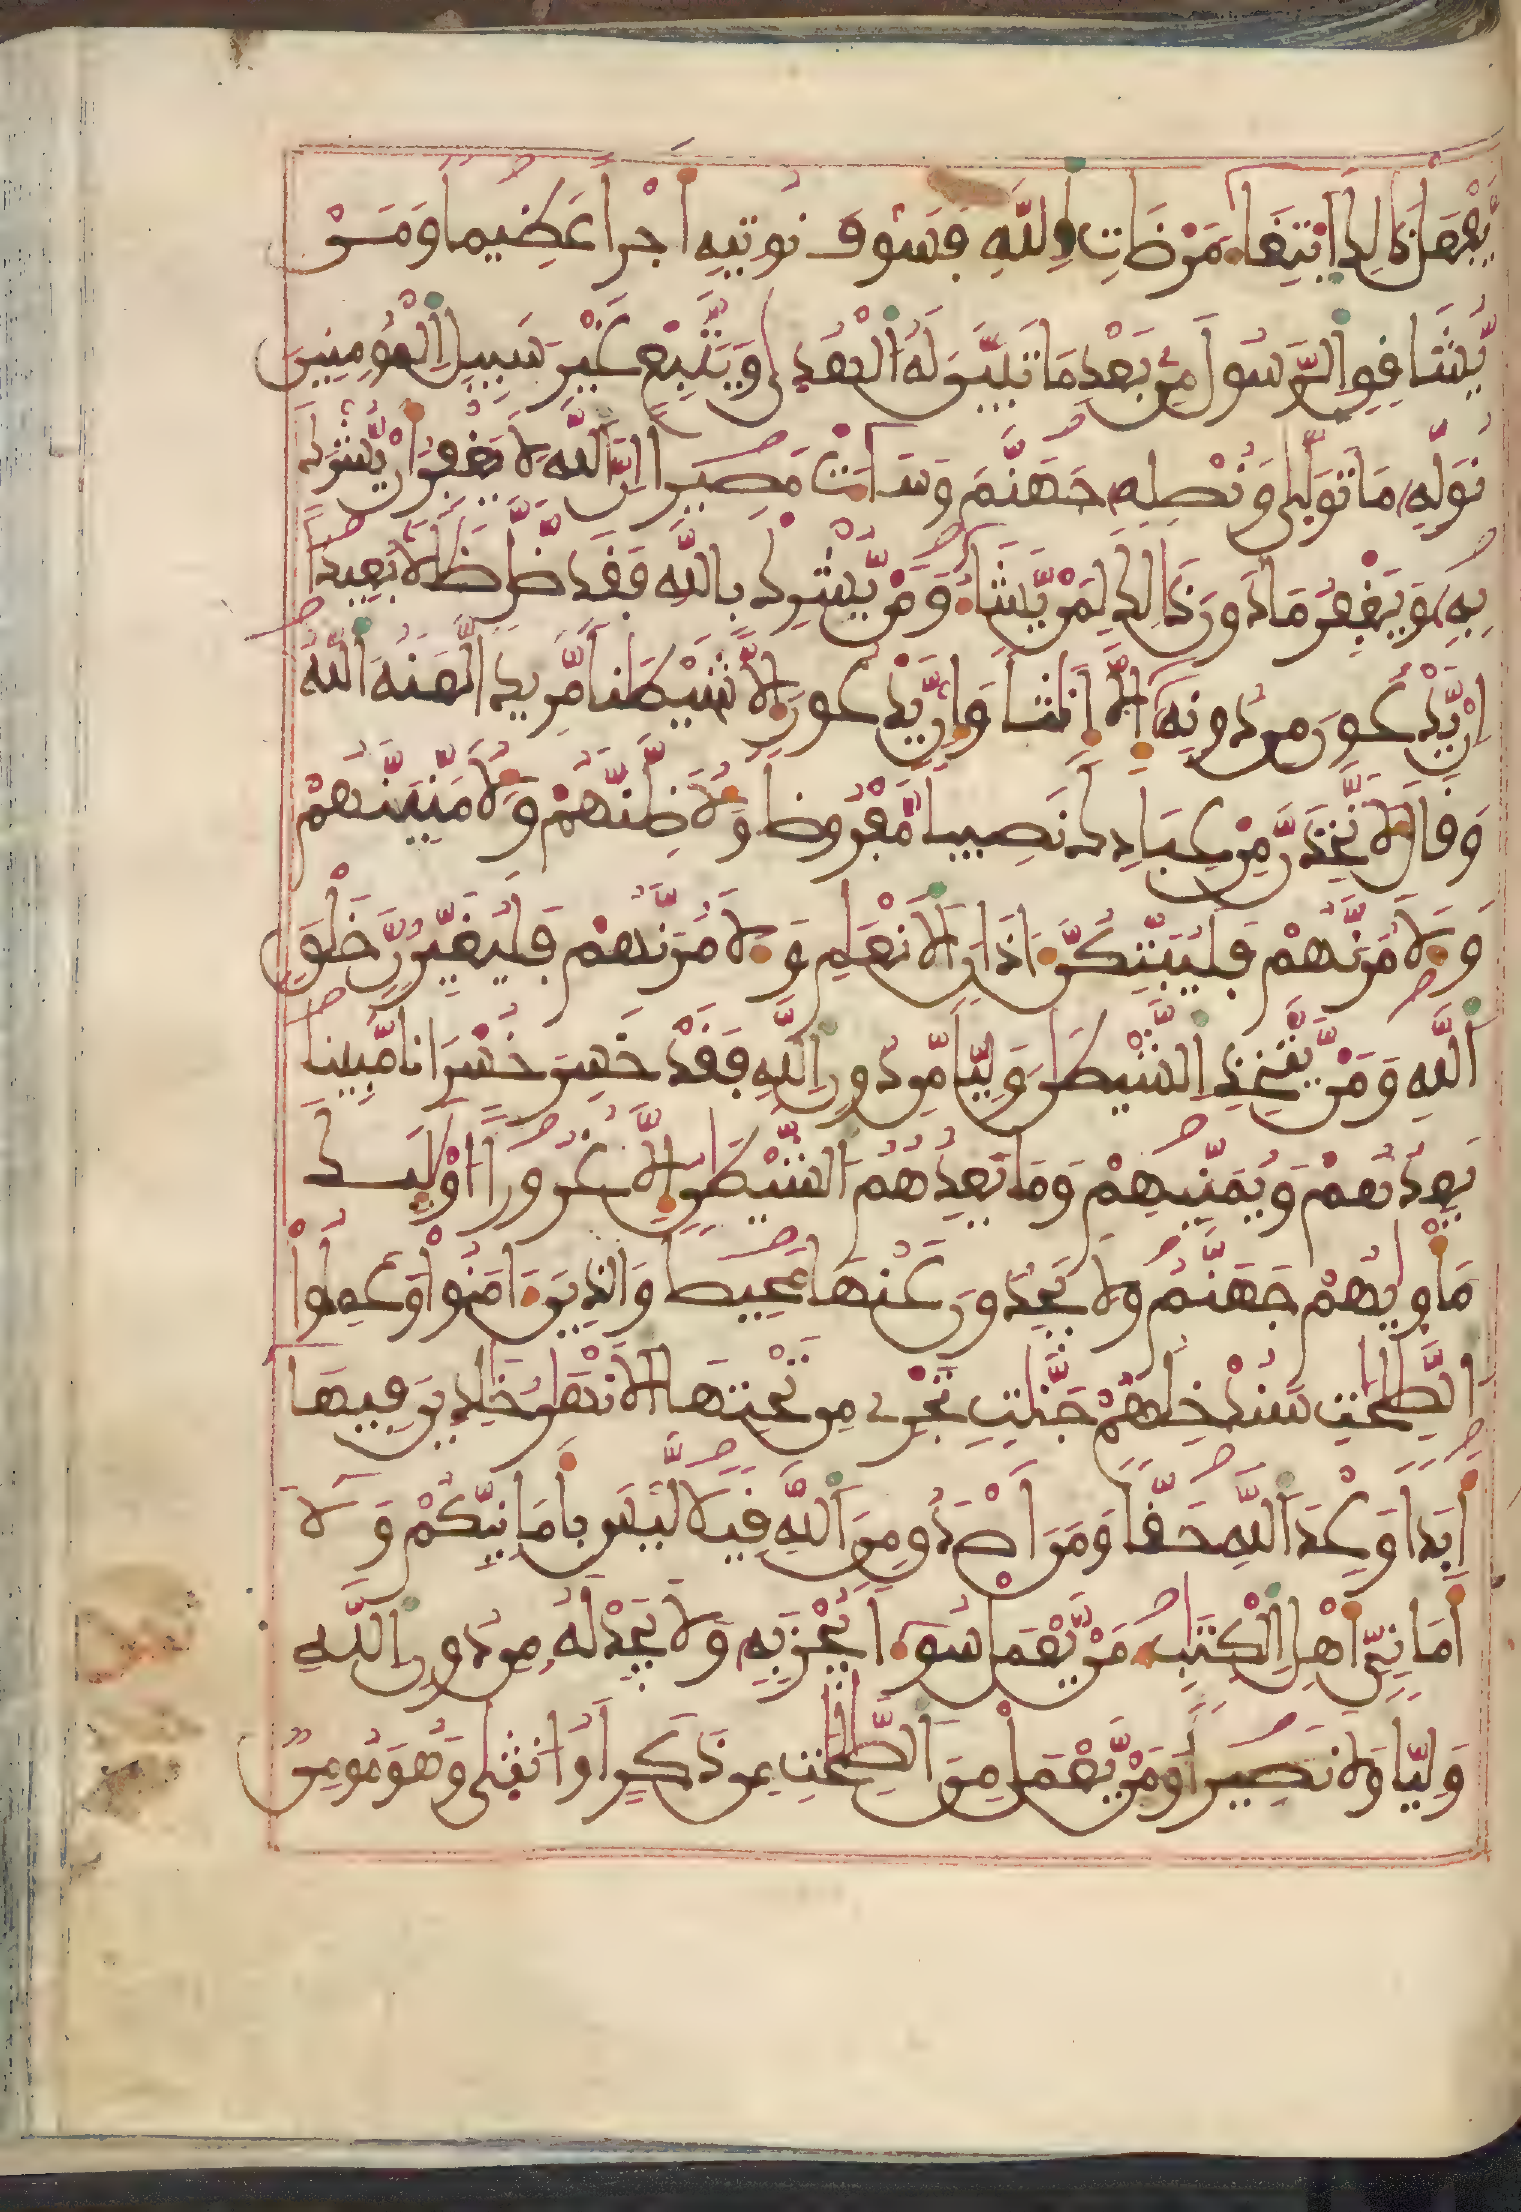 يَّفْعَلْ ذَٰلِكَ ابْتِغَاءَ مَرْضَاتِ اِ۬للَّهِ فَسَوْفَ نُوتِيهِ أَجْراً عَظِيماً وَمَنْ
يُّشَاقِقِ اِ۬لرَّسُولَ مِنۢ بَعْدِ مَا تَبَيَّنَ لَهُ اُ۬لْهُد۪ىٰ وَيَتَّبِعْ غَيْرَ سَبِيلِ اِ۬لْمُومِنِينَ
نُوَلِّهِۦ مَا تَوَلّ۪ىٰ وَنُصْلِهِۦ جَهَنَّمَ وَسَآءَتْ مَصِيراً اِنَّ اَ۬للَّهَ لَا يَغْفِرُ أَنْ يُّشْرَكَ
بِهِۦ وَيَغْفِرُ مَا دُونَ ذَٰلِكَ لِمَنْ يَّشَآءُ وَمَنْ يُّشْرِكْ بِاللَّهِ فَقَد ضَّلَّ ضَلَٰلاً بَعِيداً
اِنْ يَّدْعُونَ مِن دُونِهِۦٓ إِلَّآ إِنَٰثاً وَإِنْ يَّدْعُونَ إِلَّا شَيْطَٰناً مَّرِيداً لَّعَنَهُ اَ۬للَّهُ
وَقَالَ لَأَتَّخِذَنَّ مِنْ عِبَادِكَ نَصِيباً مَّفْرُوضاً وَلَأُضِلَّنَّهُمْ وَلَأُمَنِّيَنَّهُمْ
وَلَأٓمُرَنَّهُمْ فَلَيُبَتِّكُنَّ ءَاذَانَ اَ۬لَانْعَٰمِ وَلَأٓمُرَنَّهُمْ فَلَيُغَيِّرُنَّ خَلْقَ
اَ۬للَّهِ وَمَنْ يَّتَّخِذِ اِ۬لشَّيْطَٰنَ وَلِيّاً مِّن دُونِ اِ۬للَّهِ فَقَدْ خَسِرَ خُسْرَاناً مُّبِيناً
يَعِدُهُمْ وَيُمَنِّيهِمْ وَمَا يَعِدُهُمُ اُ۬لشَّيْطَٰنُ إِلَّا غُرُوراً ا۟وْلَٰٓئِكَ
مَأْو۪يٰهُمْ جَهَنَّمُ وَلَا يَجِدُونَ عَنْهَا مَحِيصاً وَالذِينَ ءَامَنُوا۟ وَعَمِلُوا۟
اُ۬لصَّٰلِحَٰتِ سَنُدْخِلُهُمْ جَنَّٰتٍ تَجْرِے مِن تَحْتِهَا اَ۬لَانْهَٰرُ خَٰلِدِينَ فِيهَآ
أَبَداً وَعْدَ اَ۬للَّهِ حَقّاً وَمَنَ اَصْدَقُ مِنَ اَ۬للَّهِ قِيلاً لَّيْسَ بِأَمَانِيِّكُمْ وَلَآ
أَمَانِيِّ أَهْلِ اِ۬لْكِتَٰبِ مَنْ يَّعْمَلْ سُوٓءاً يُجْزَ بِهِۦ وَلَا يَجِدْ لَهُۥ مِن دُونِ اِ۬للَّهِ
وَلِيّاً وَلَا نَصِيراً وَمَنْ يَّعْمَلْ مِنَ اَ۬لصَّٰلِحَٰتِ مِن ذَكَرٍ اَوُ ا۟نث۪ىٰ وَهُوَ مُومِنٌ